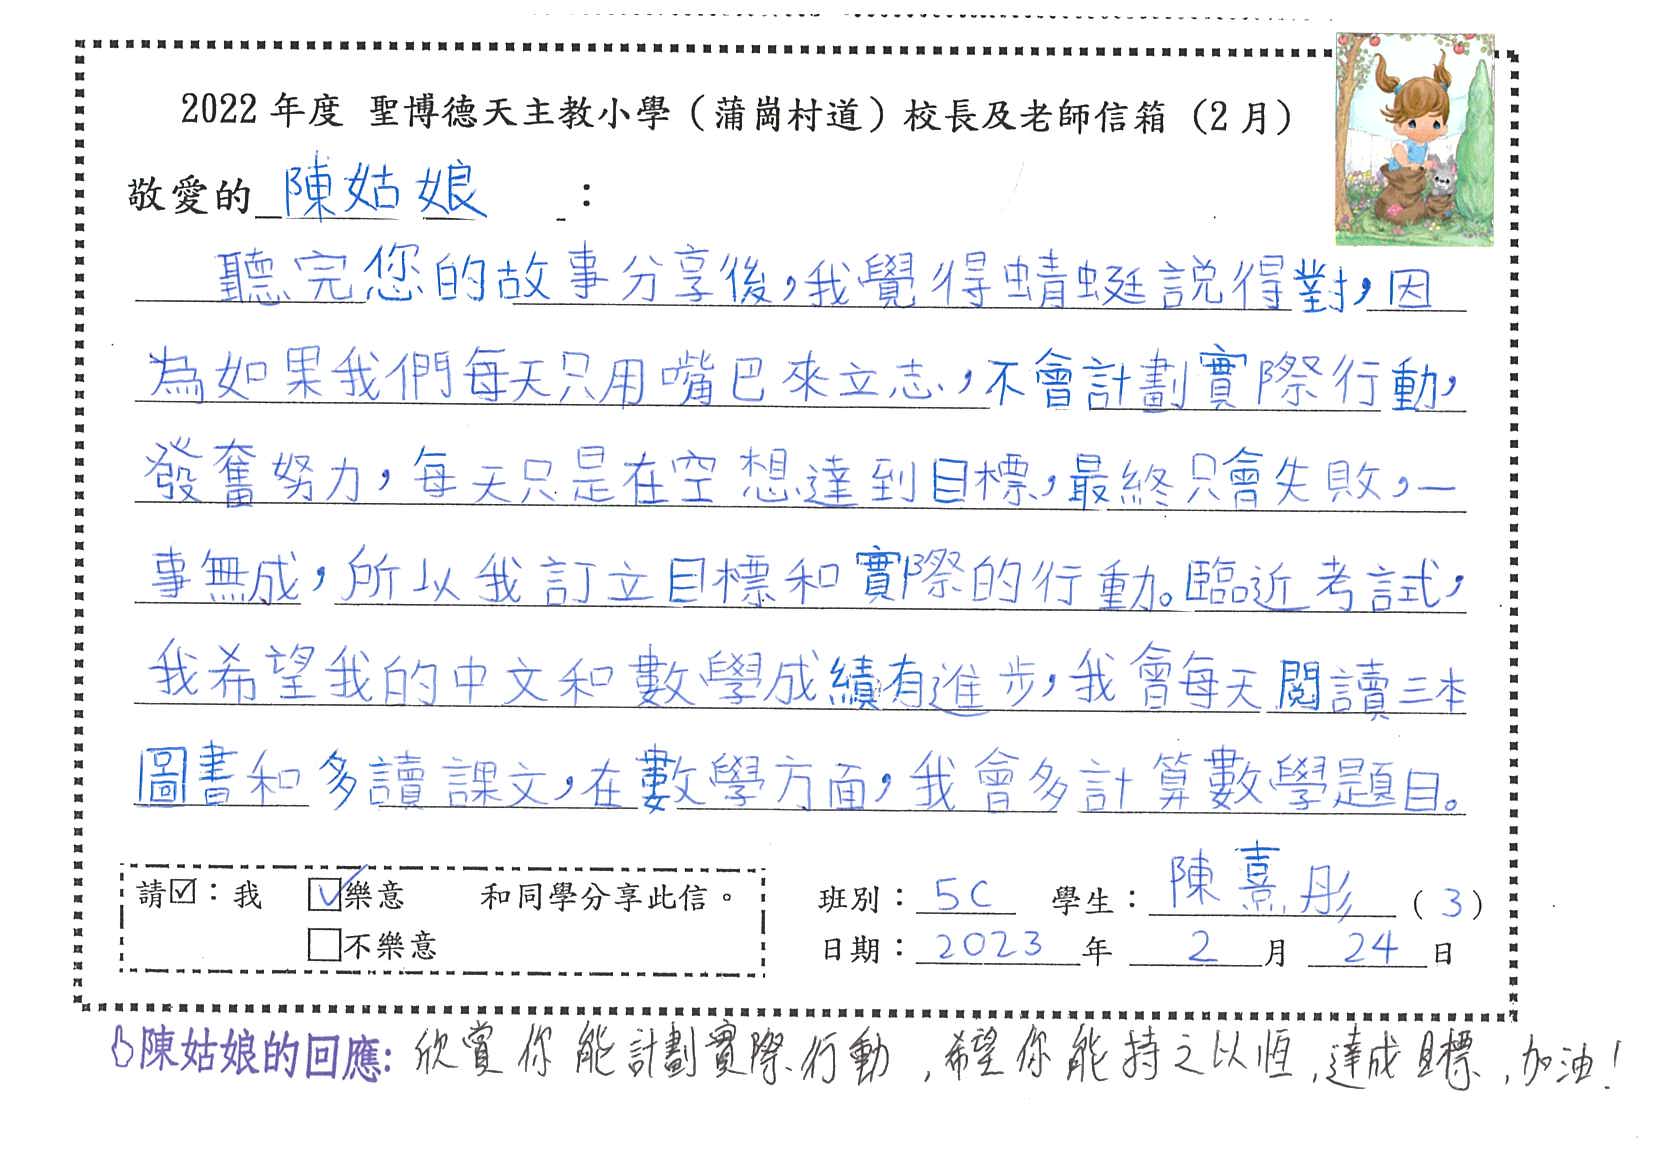 2022 年度 聖博德天主教小學（蒲崗村道）校長及老師信箱（2 月）
敬愛的 陳姑娘 ：
聽完您的故事分享後，我覺得蜻蜓説得對，因
為如果我們每天只用嘴巴來立志，不會計劃實際行動，
發奮努力，每天只是在空想達到目標，最終只會失敗，一
事無成，所以我訂立目標和實際的行動。臨近考試，
我希望我的中文和數學成績有進步，我會每天閱讀三本
圖書和多讀課文，在數學方面，我會多計算數學題目。
請☑：我 ☑樂意 和同學分享此信。
□不樂意
班別：5C 學生：陳熹彤（3）
日期：2023 年 2 月 24 日
陳姑娘的回應：欣賞你能計劃實際行動，希望你能持之以恆，達成目標，加油！